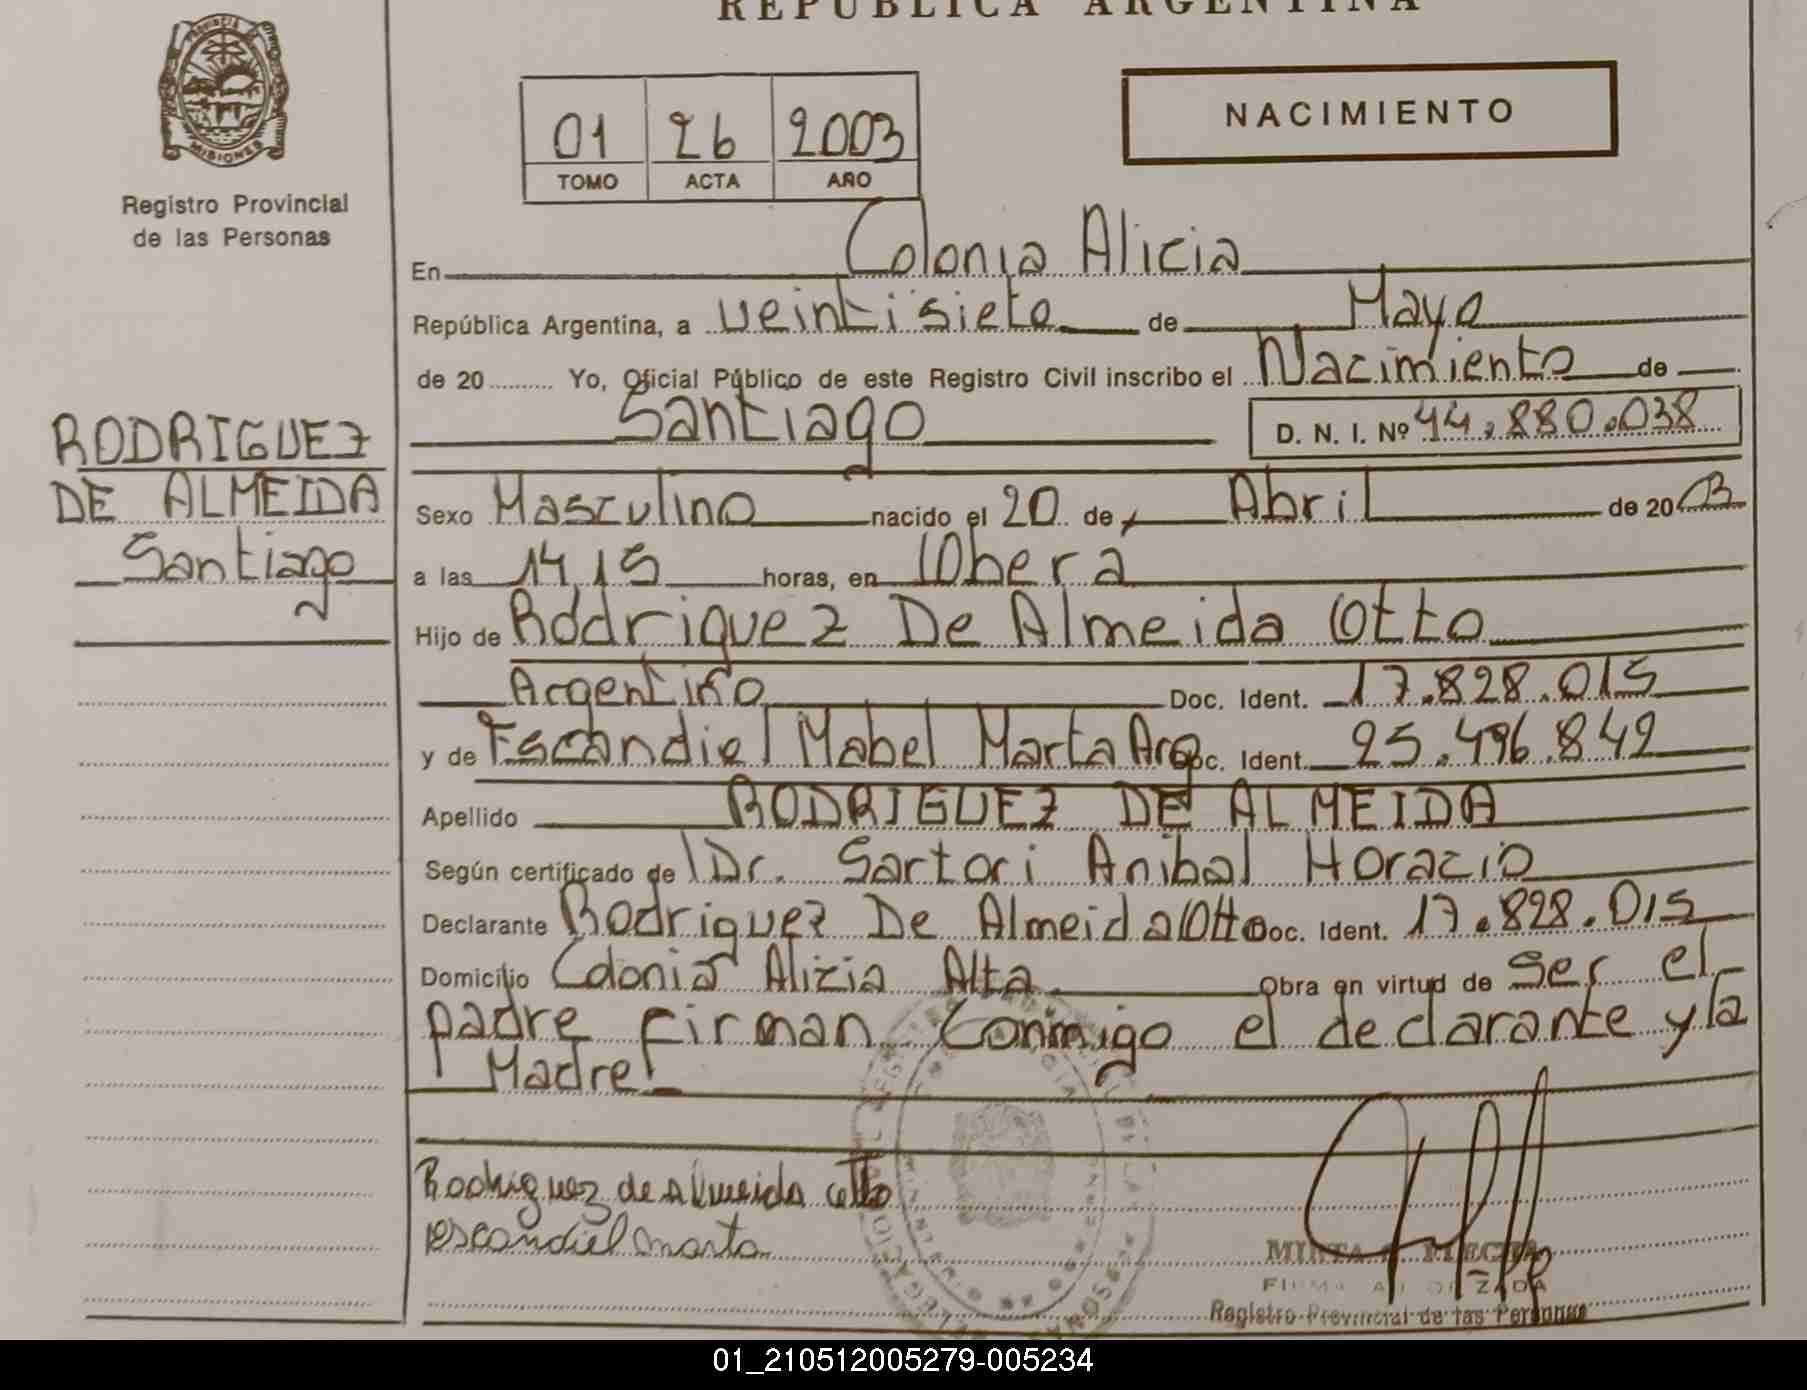 REPUBLICA ARGENTINA
PROVINCIA DE
MISIONES
Registro Provincial
de las Personas
01 26 2003
TOMO ACTA AÑO
NACIMIENTO
En Colonia Alicia
República Argentina, a veintisiete de Mayo
de 20 Yo, Oficial Público de este Registro Civil inscribo el Nacimiento de
Santiago D. N. I. Nº 44.880.038
RODRIGUEZ
DE ALMEIDA
Santiago
Sexo Masculino nacido el 20 de Abril de 2003
a las 14,15 horas, en Obera
Hijo de Rodriguez De Almeida Otto
Argentino Doc. Ident. 17.828.015
y de Escandiel Mabel Marta Arg Doc. Ident. 25.496.842
Apellido RODRIGUEZ DE ALMEIDA
Según certificado de Dr. Sartori Anibal Horacio
Declarante Rodriguez De Almeida Otto Doc. Ident. 17.828.015
Domicilio Colonia Alicia Alta Obra en virtud de Ser el
padre firman Conmigo el declarante y la
Madre
Rodriguez de Almeida Otto
escandiel marta
Registro Provincial de las Personas
01_210512005279-005234